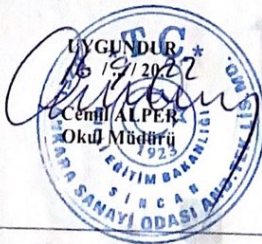 UYGUNDUR
16/9/2022
Cemil ALPER
Okul Müdürü
T.C.
EĞİTİM BAKANLIĞI
1923
SİNCAN
ANKARA SANAYİ ODASI